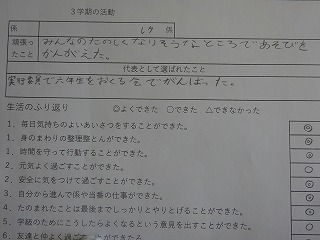 3学期の活動
係 しゅ 係
頑張ったこと みんなのたのしくなりそうな、ところであそびを
かんがえた。
代表として選ばれたこと
実行委員で六年生をおくる会でがんばった。
生活のふり返り ◎よくできた ○できた △できなかった
1、毎日気持ちのよいあいさつをすることができた。
1、身のまわりの整理整とんができた。
1、時間を守って行動することができた。
2、元気よく過ごすことができた。
2、安全に気をつけて過ごすことができた。
3、自分から進んで係や当番の仕事ができた。
4、たのまれたことは最後までしっかりとやりとげることができた。
5、学級のためにこうしたらよくなるという意見を出すことができた。
6、友達と仲よく過ごことができた